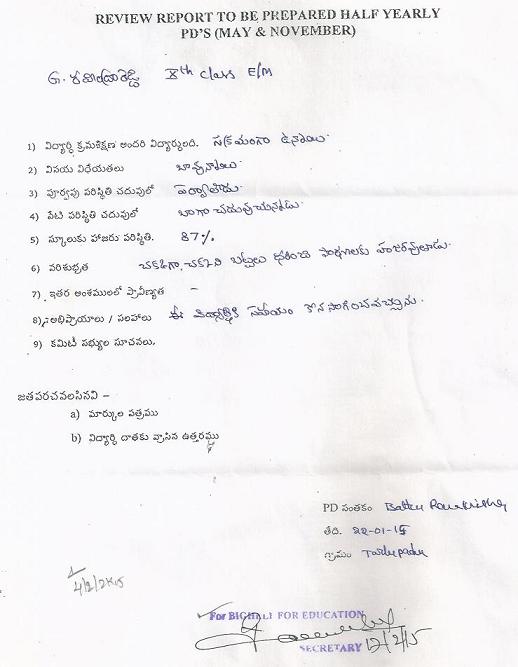 REVIEW REPORT TO BE PREPARED HALF YEARLY
PD'S (MAY & NOVEMBER)
G. రవీంద్రారెడ్డి Xth Class E/M
1) విద్యార్థి క్రమశిక్షణ అందరి విద్యార్థులది. సక్రమంగా ఉన్నాయి.
2) వినయ విధేయతలు బావున్నాయి.
3) పూర్వపు పరిస్థితి చదువులో
4) నేటి పరిస్థితి చదువులో బాగా చదువుచున్నాడు.
5) స్కూలుకు హాజరు పరిస్థితి. 87%
6) పరిశుభ్రత చక్కగా, చక్కని బట్టలు ధరించి హాజరవుతాడు.
7) ఇతర అంశములలో ప్రావీణ్యత –
8) అభిప్రాయాలు / సలహాలు ఈ విద్యార్థికి సహాయం కొనసాగించవచ్చును.
9) కమిటీ సభ్యుల సూచనలు.
జతపరచవలసినవి –
a) మార్కుల పత్రము
b) విద్యార్థి దాతకు వ్రాసిన ఉత్తరము
PD సంతకం
తేది. 22-01-15
గ్రామం Tadepadu
4/2/2015
For BIGHALI FOR EDUCATION
SECRETARY 12/2/15